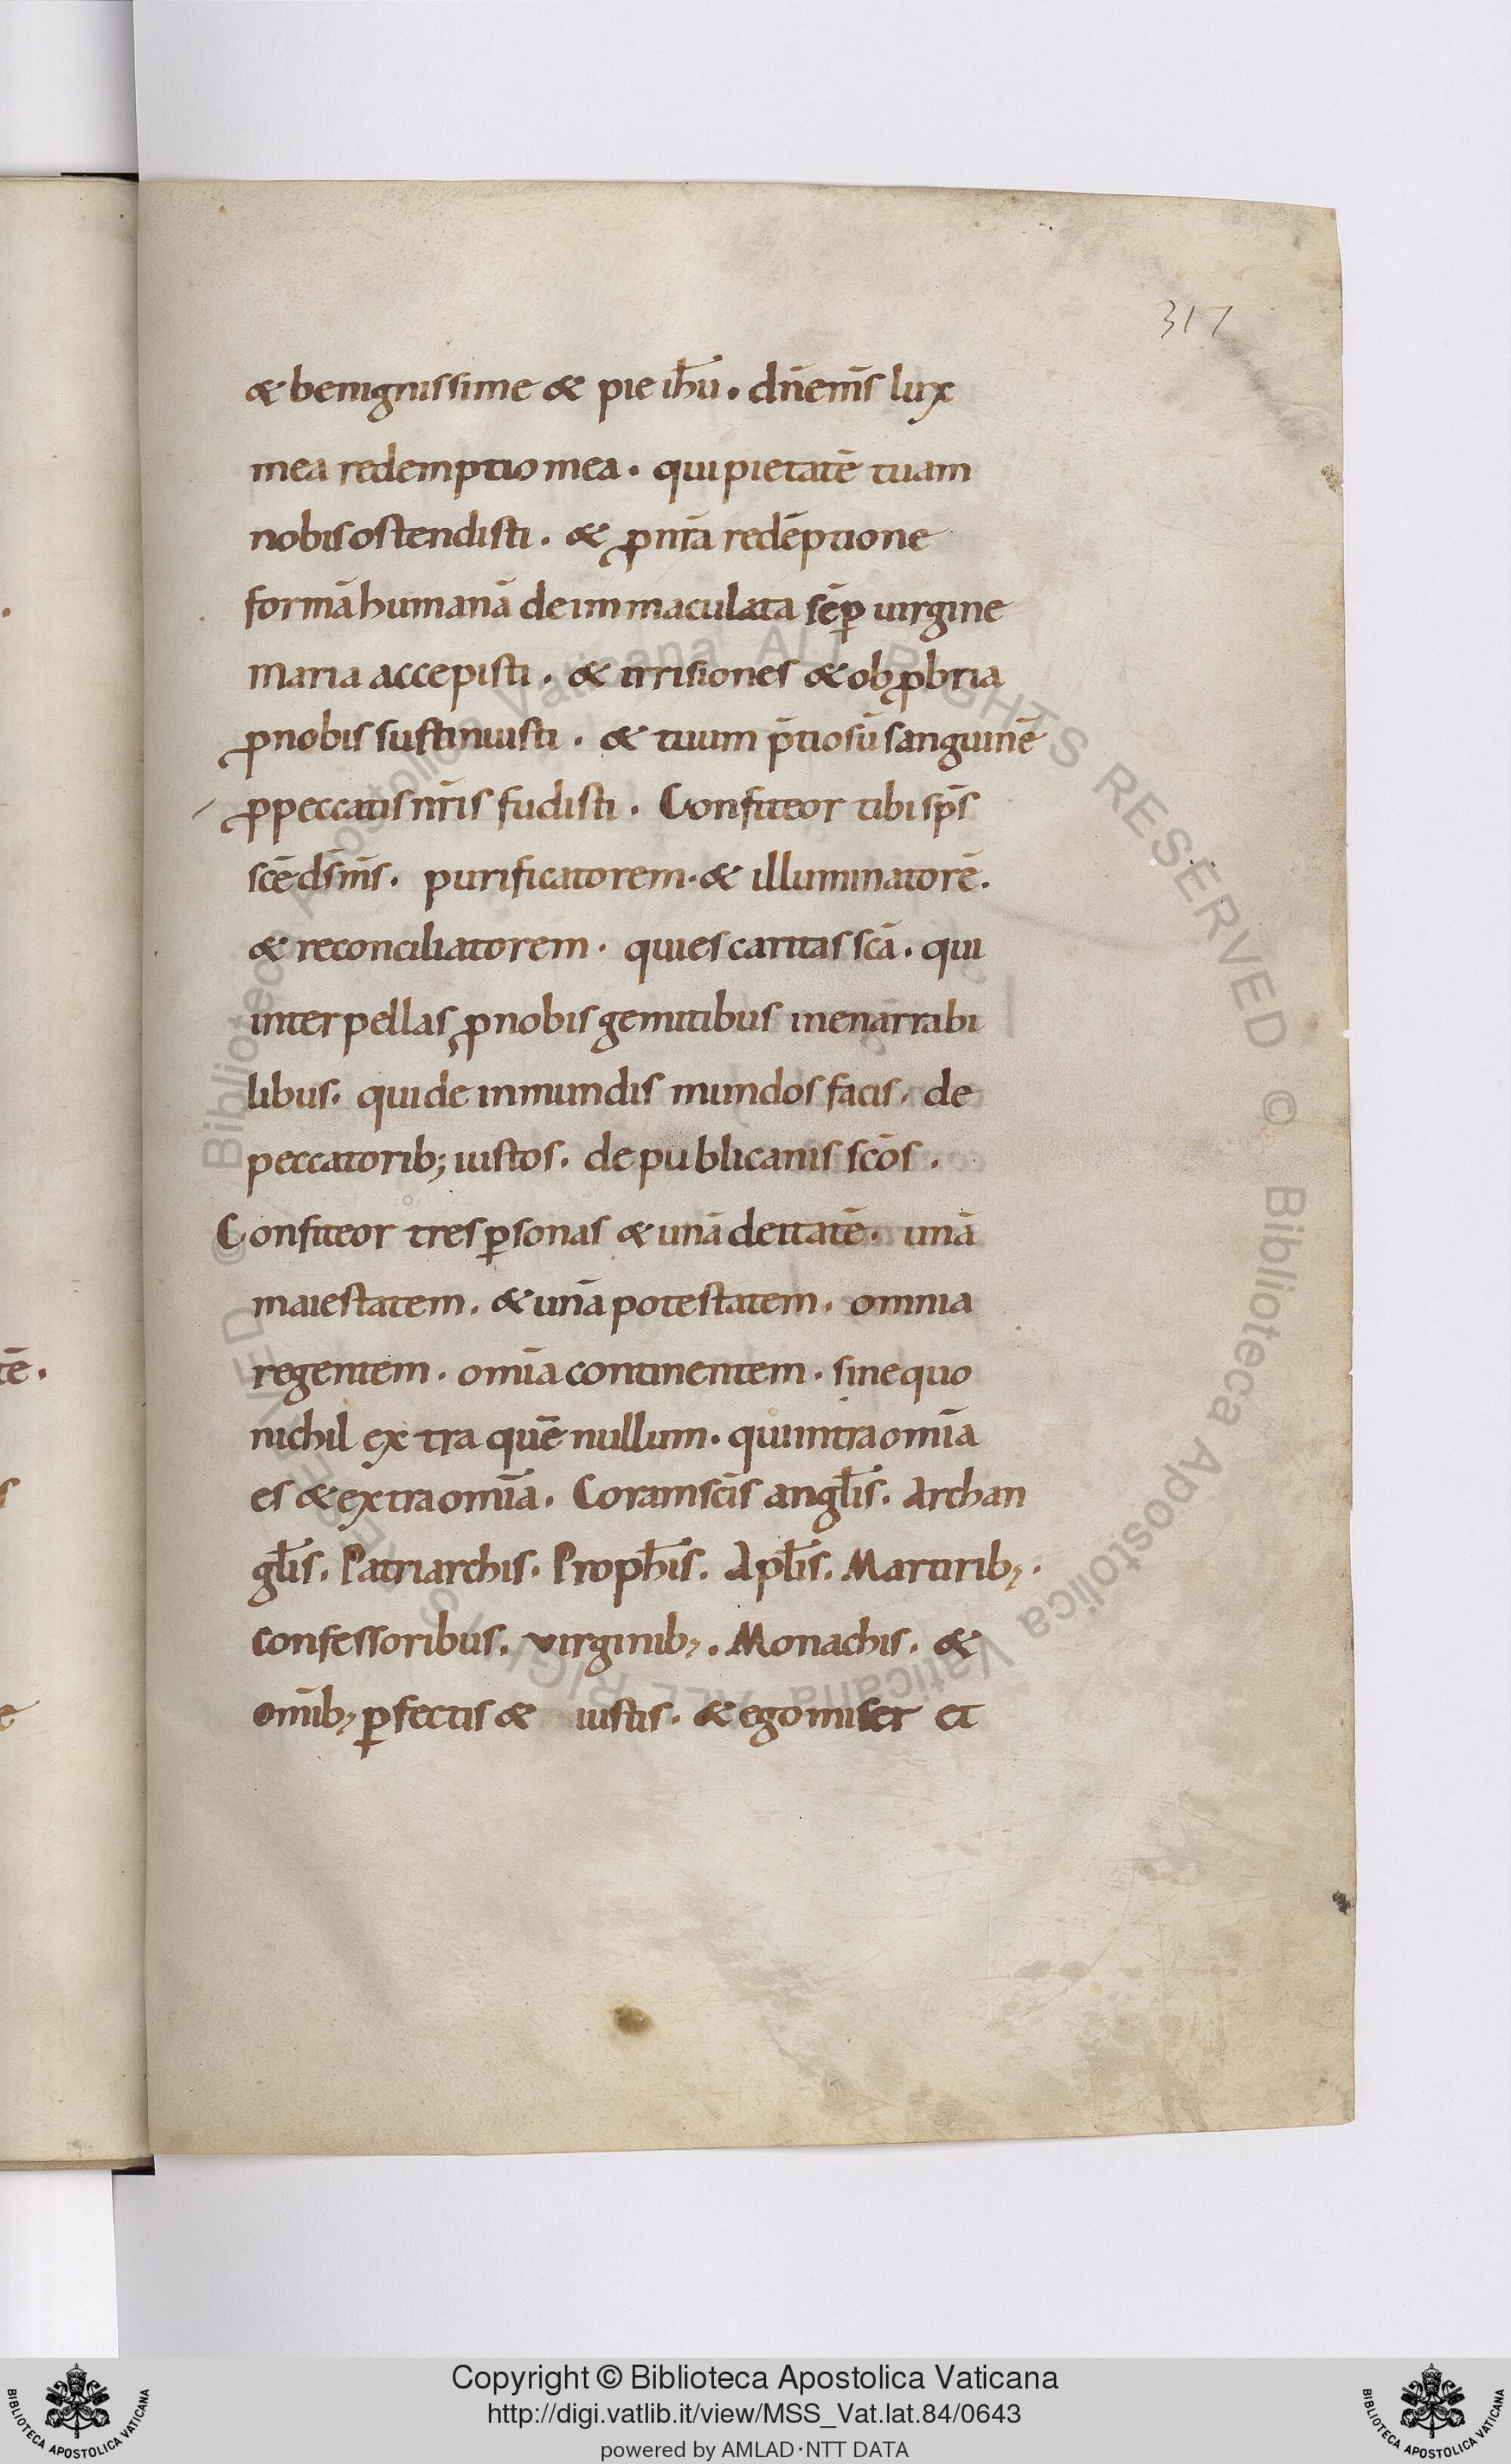 317
& benignissime & pie ih̄u. dn̄e m̄s lux
mea redemptio mea. qui pietatē tuam
nobis ostendisti. & ꝓ nr̄a redēptione
formā humanā de immaculata sēꝑ uirgine
maria accepisti. & irrisiones & obꝓbria
ꝓ nobis sustinuisti. & tuum p̄tiosū sanguinē
ꝓ peccatis nr̄is fudisti. Confiteor tibi sp̄s
sc̄e ds̄ m̄s. purificatorem. & illuminatorē.
& reconciliatorem. qui es caritas sc̄a. qui
interpellas ꝓ nobis gemitibus inenarrabi
libus. qui de inmundis mundos facis. de
peccatorib; iustos. de publicanis sc̄os.
Confiteor tres ꝑsonas & unā deitatē. unā
maiestatem. & unā potestatem. omnia
regentem. om̄ia continentem. sine quo
nichil extra quē nullum. qui intra om̄ia
es & extra om̄ia. Coram sc̄is angl̄is. Archan
gl̄is. Patriarchis. Proph̄is. Apl̄is. Martirib;.
confessoribus. virginib;. Monachis. &
om̄ib; ꝑfectis & iustis. & ego miser et
tē.
s
e
© Biblioteca Apostolica Vaticana ALL RIGHTS RESERVED © Biblioteca Apostolica Vaticana ALL RIGHTS RESERVED
Copyright © Biblioteca Apostolica Vaticana
http://digi.vatlib.it/view/MSS_Vat.lat.84/0643
powered by AMLAD·NTT DATA
BIBLIOTECA APOSTOLICA VATICANA
BIBLIOTECA APOSTOLICA VATICANA